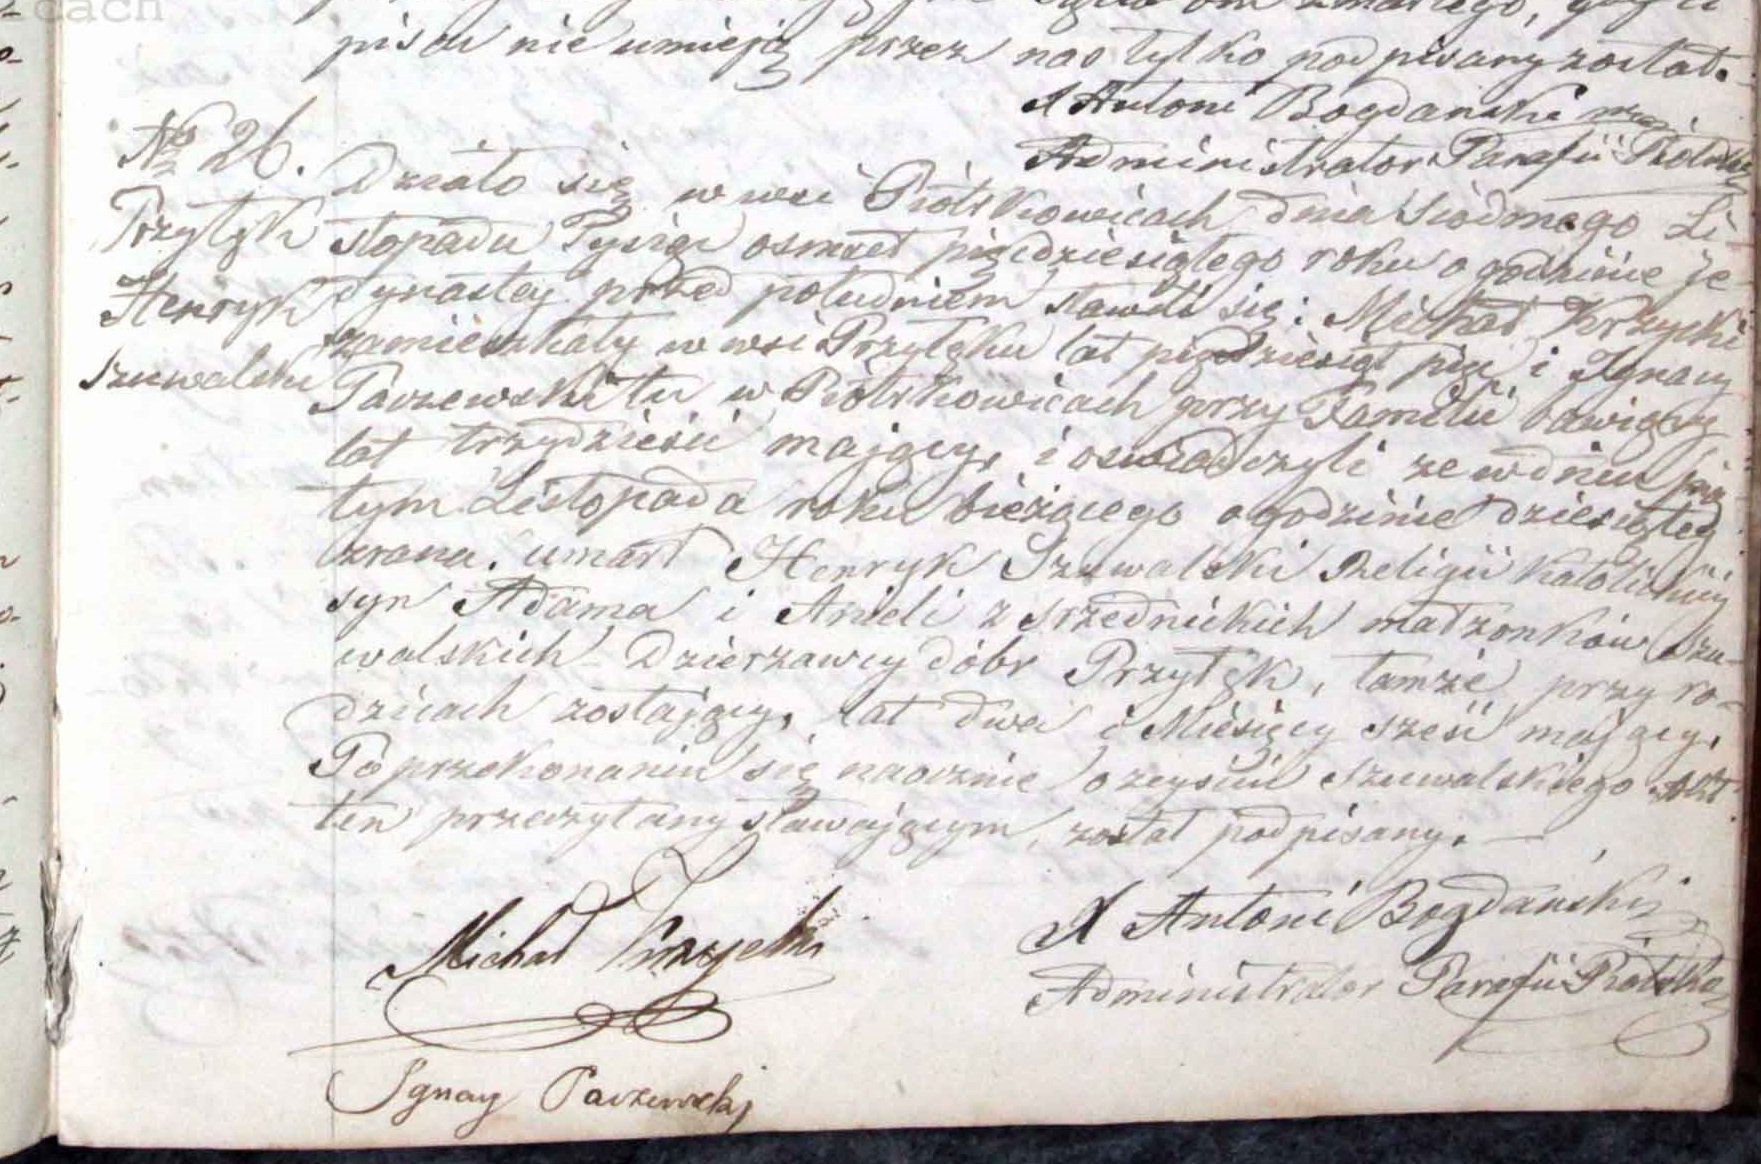 cach
pisać nie umieją przez nas tylko podpisany został.
X Antoni Bogdański
Administrator Parafii
No 26.
Przyłęk
Henryk
Szuwalski
Działo się w wsi Piotrkowicach dnia Siódmego Li-
stopada Tysiąc osmset pięćdziesiątego roku o godzinie je-
dynastey przed południem stawili się: Michał Krzycki
zamieszkały w wsi Przyłęku lat pięćdziesiąt pięć i Ignacy
Paczewski tu w Piotrkowicach przy Familii bawiący
lat trzydzieści mający, i oswiadczyli ze w dniu pią
tym Listopada roku bieżącego o godzinie dziesiątej
zrana. umarł Henryk Szuwalski Religii katolickiej
syn Adama i Anieli z Srzednickich małzonków Szu-
walskich Dzierzawcy dóbr Przyłęk, tamże przy ro-
dzicach zostający, lat dwa i Miesięcy sześć mający,
Po przekonaniu się naocznie o zeyściu Szuwalskiego Akt
ten przeczytany stawającym, został podpisany.
Michał Krzycki
X Antoni Bogdański
Administrator Parafii Piotrko
Ignacy Paczewski